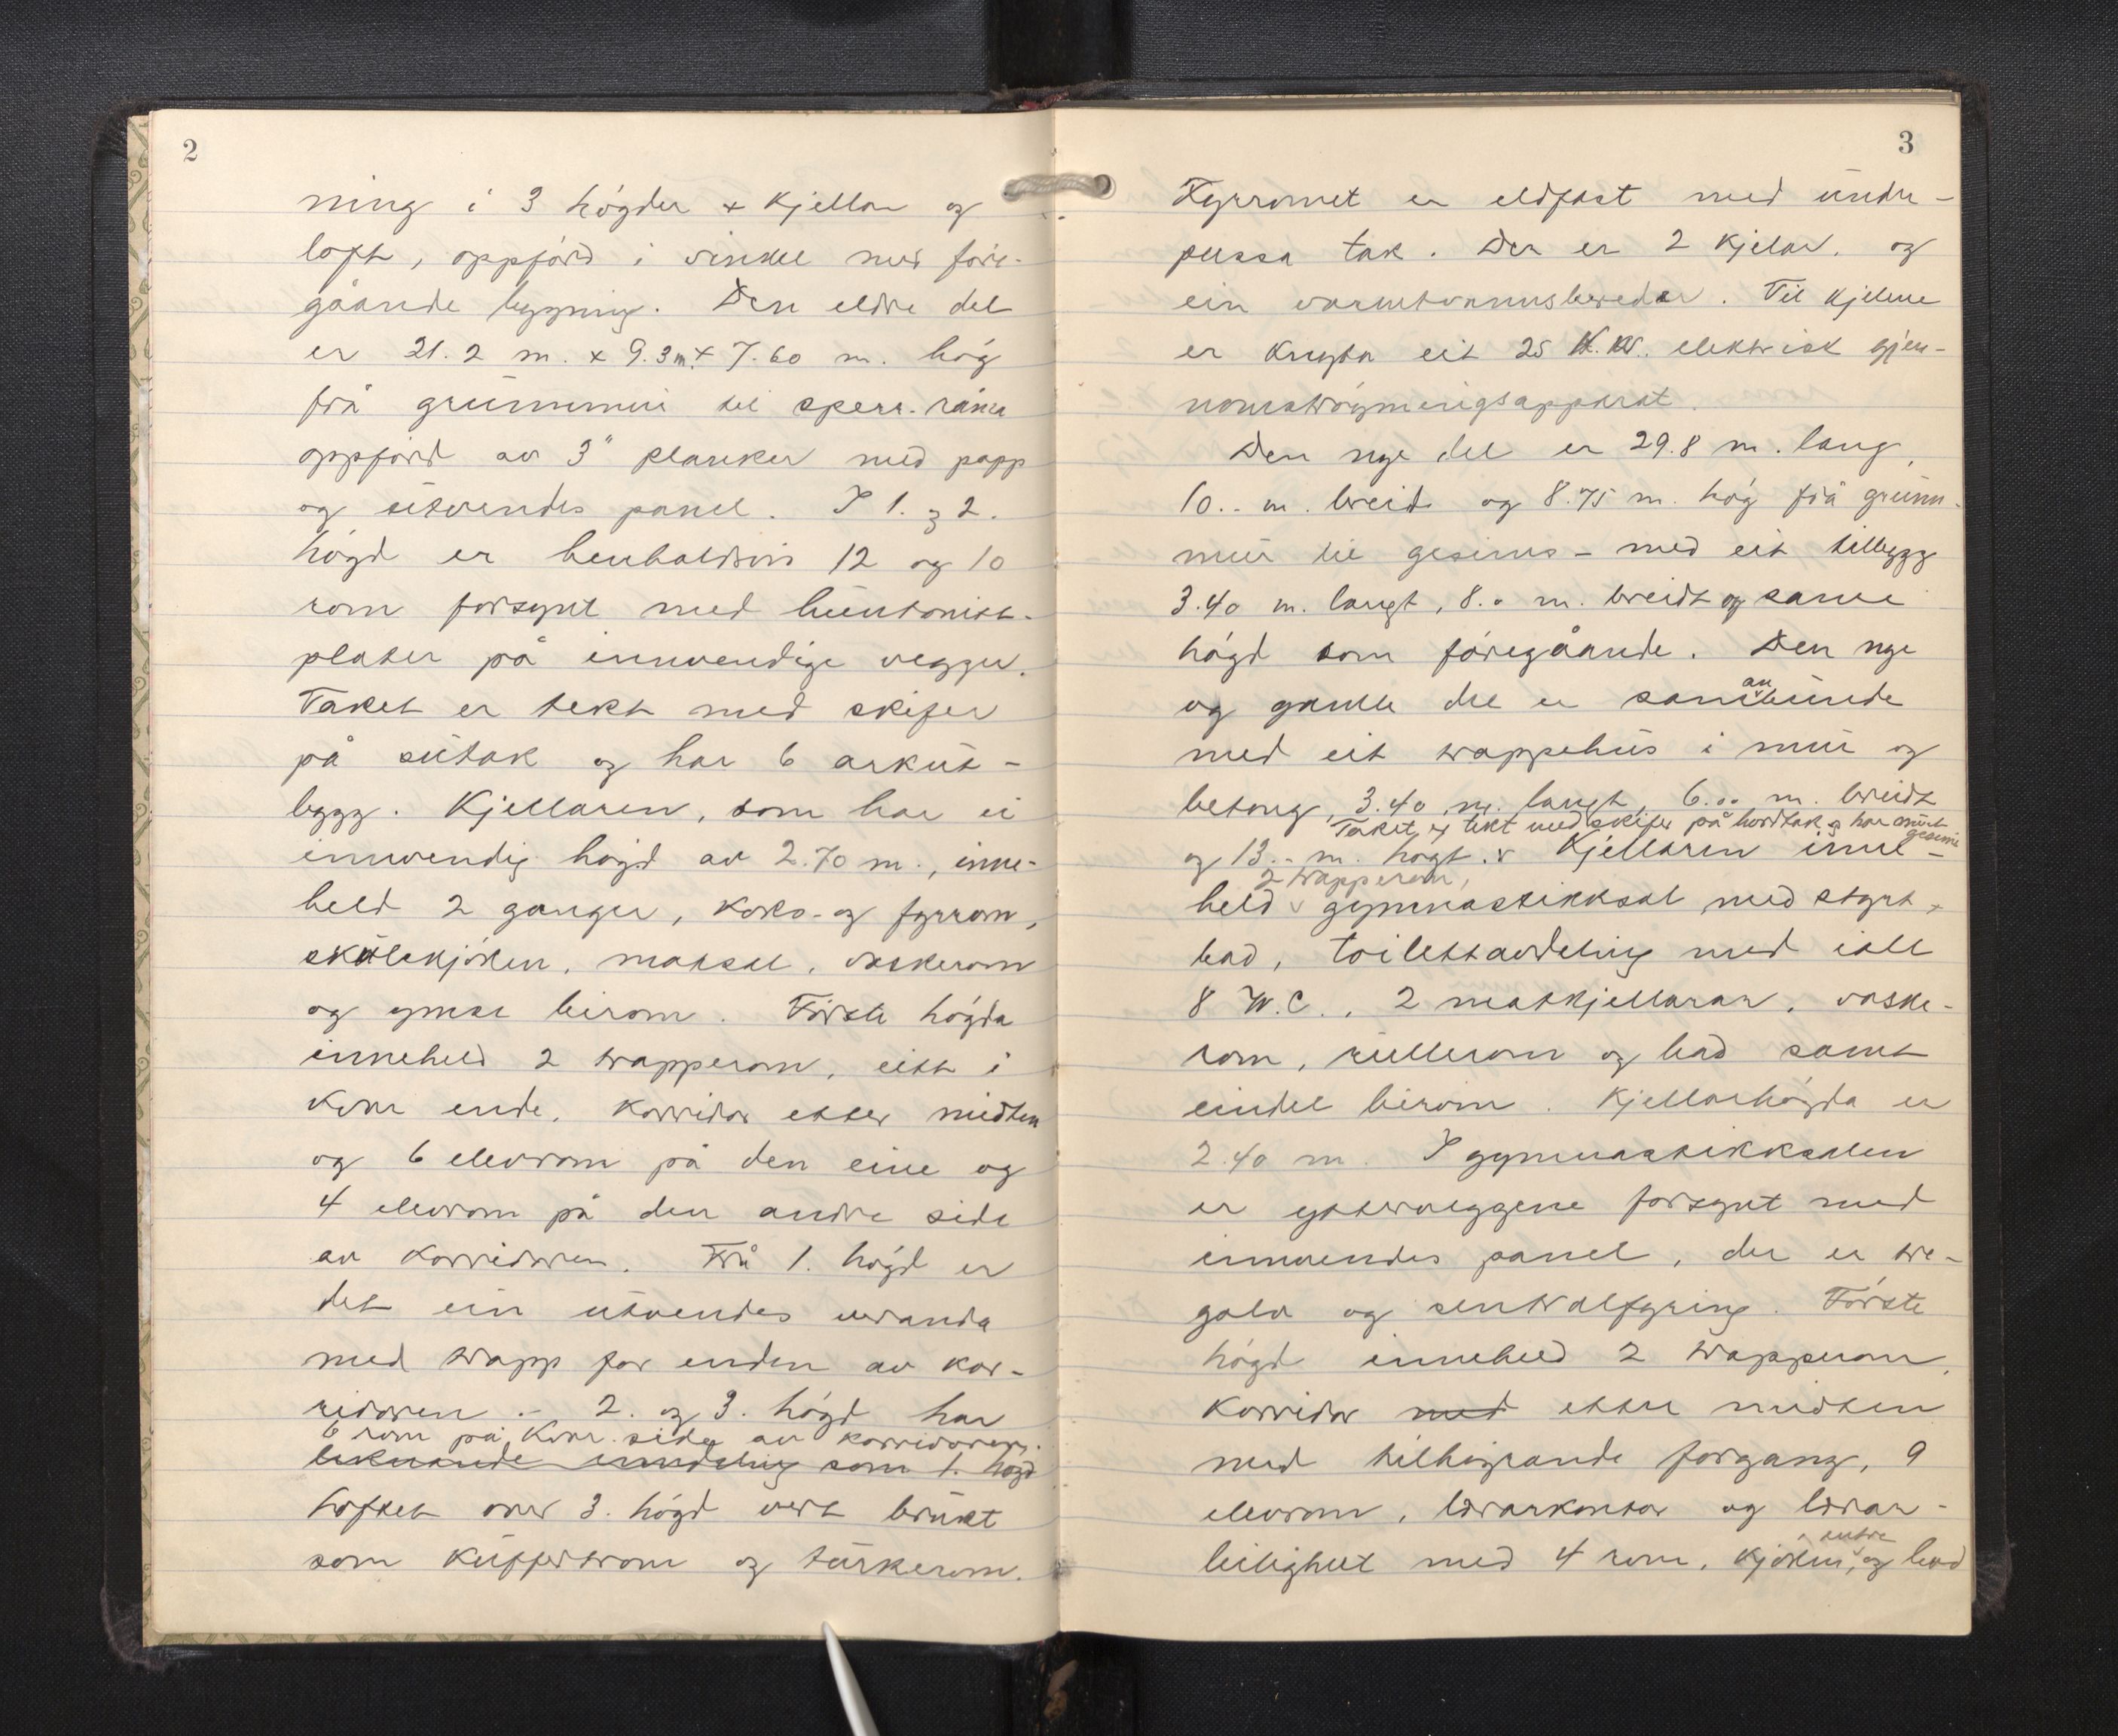 2
ning i 3 høgder + kjellar og
loft, oppførd i vinkel med føre-
gåande bygning. Den eldre del
er 21.2 m. x 9.3 m. x 7.60 m. høg
frå grunnmur til sperr-råma
oppførd av 3" planker med papp
og utvendes panel. I 1. og 2.
høgd er henholdsvis 12 og 10
rom forsynt med huntonitt-
plater på innvendige vegger.
Taket er tekt med skifer
på sutak og har 6 arkut-
bygg. Kjellaren, som har ei
innvendig høgd av 2.70 m., inne-
held 2 ganger, koks- og fyrrom,
skulekjøken, matsal, vaskerom
og ymse birom. Første høgda
inneheld 2 trapperom, eitt i
kvar ende, korridor etter midten
og 6 elevrom på den eine og
4 elevrom på den andre side
av korridoren. Frå 1. høgd er
det ein utvendes veranda
med trapp for enden av kor-
ridoren. - 2. og 3. høgd har
6 rom på kvar side av korridoren.
liknande inndeling som 1. høgd
Loftet over 3. høgd vert brukt
som kuffertrom og tørkerom.
3
Fyrromet er eldfast med undre-
pussa tak. Der er 2 kjelar, og
ein varmtvannsbereder. Til kjelene
er knyta eit 25 K.W. elektrisk gjen-
nomstrøymingsapparat.
Den nye del er 29.8 m. lang,
10.- m. breid og 8.75 m. høg frå grunn-
mur til gesims - med eit tillegg
3.40 m. langt, 8.0 m. breidt og same
høgd som føregåande. Den nye
an
og gamle del er sambunde
med eit trappehus i mur og
betong, 3.40 m. langt, 6.00 m. breidt
Taket er tekt med skifer på bordtak og har murt gesims
og 13.- m. høgt. v Kjellaren inne-
2 trapperom,
held v gymnastikksal med styrt-
bad, toilettavdeling med ialt
8 W.C., 2 matkjellarar, vaske-
rom, rullerom og bad samt
eindel birom. Kjellarhøgda er
2.40 m. I gymnastikksalen
er ytterveggene forsynt med
innvendes panel, der er tre-
golv og sentralfyring. Første
høgd inneheld 2 trapperom,
korridor med etter midten
med tilhøyrande forgang, 9
elevrom, lærarkontor og lærar-
entre
leilighet med 4 rom, kjøken, og bad